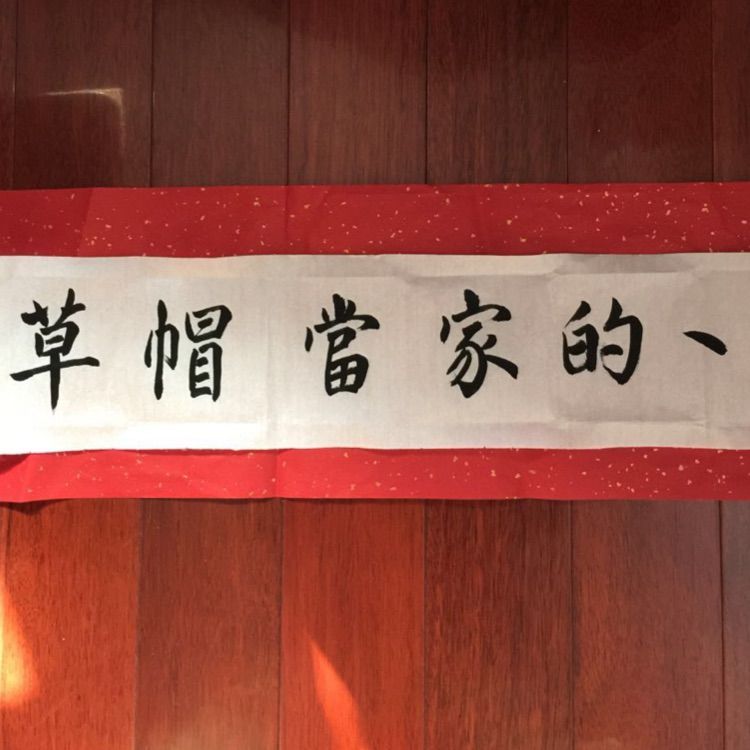 草帽當家的丶